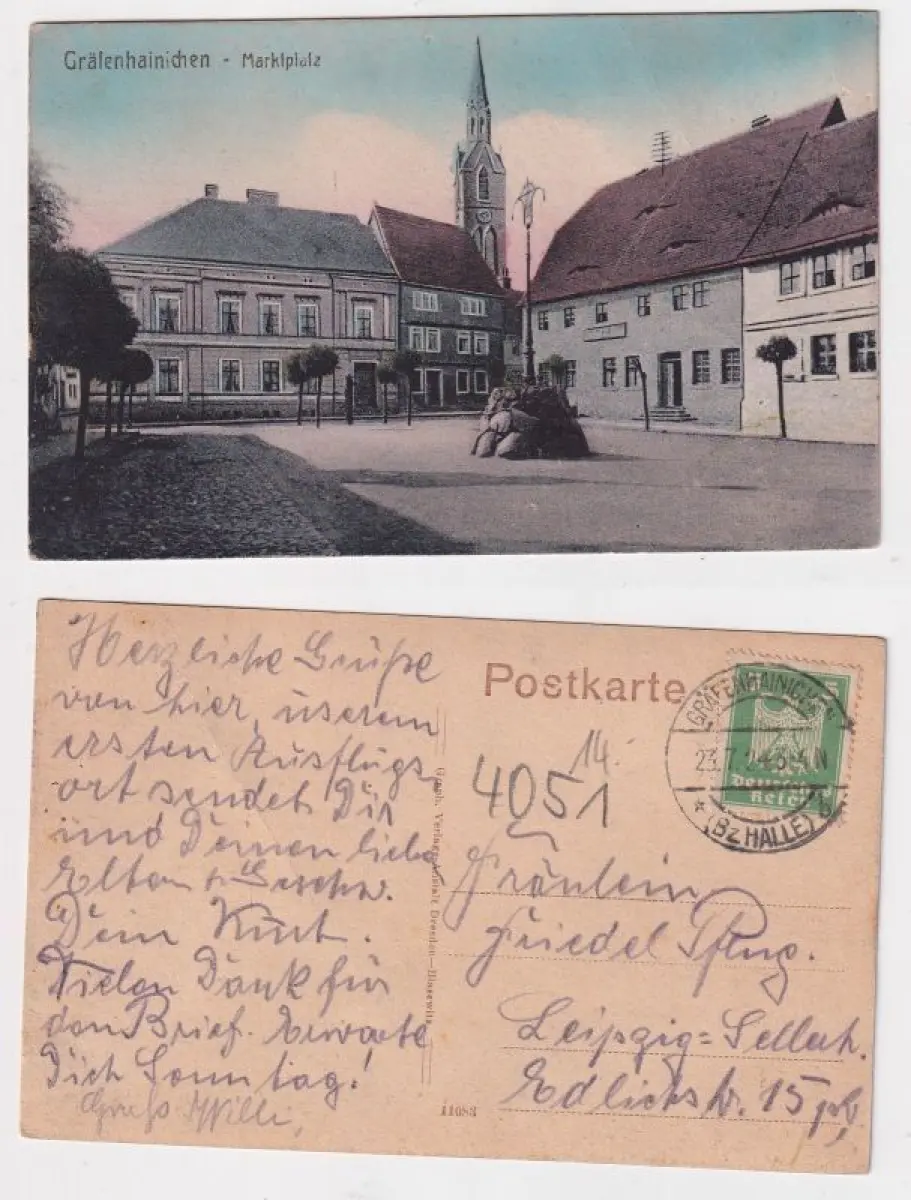 Gräfenhainichen - Marktplatz
Herzliche Grüße
von hier, userem
ersten Ausflugs-
ort sendet Dir
und Deinen lieben
Eltern u. Geschw.
Dein Kurt.
Vielen Dank für
den Brief. Erwarte
Dich Sonntag!
Gruß Willi
Postkarte
GRÄFENHAINICHEN
23.7.
(BZ HALLE)
Deutsches
Reich
14.
4051
Fräulein
Friedel Pflug.
Leipzig=Sellerh.
15
Verlags-Anstalt, Dresden—Blasewitz
11083